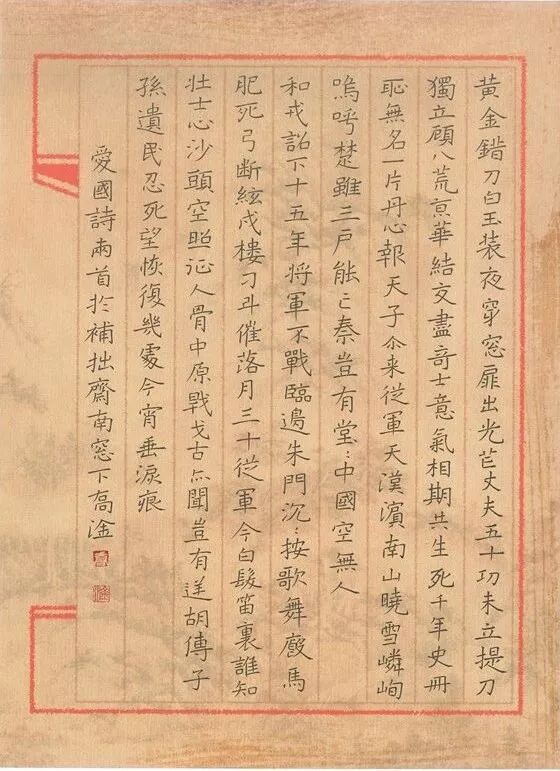 黄金錯刀白玉装夜穿窓扉出光芒丈夫五十功未立提刀
獨立顧八荒亰華結交盡奇士意氣相期共生死千年史冊
恥無名一片丹心報天子尒来從軍天漢濱南山曉雪嶙峋
嗚呼楚雖三戶能亡秦豈有堂:中國空無人
和戎詔下十五年将軍不戰臨邊朱門沉:按歌舞廄馬
肥死弓断絃戍樓刁斗催落月三十從軍今白髮笛裏誰知
壮士心沙頭空照征人骨中原戰戈古亦聞豈有逆胡傳子
孫遺民忍死望恢復幾處今宵垂淚痕
愛國詩兩首於補拙齋南窓下高淦